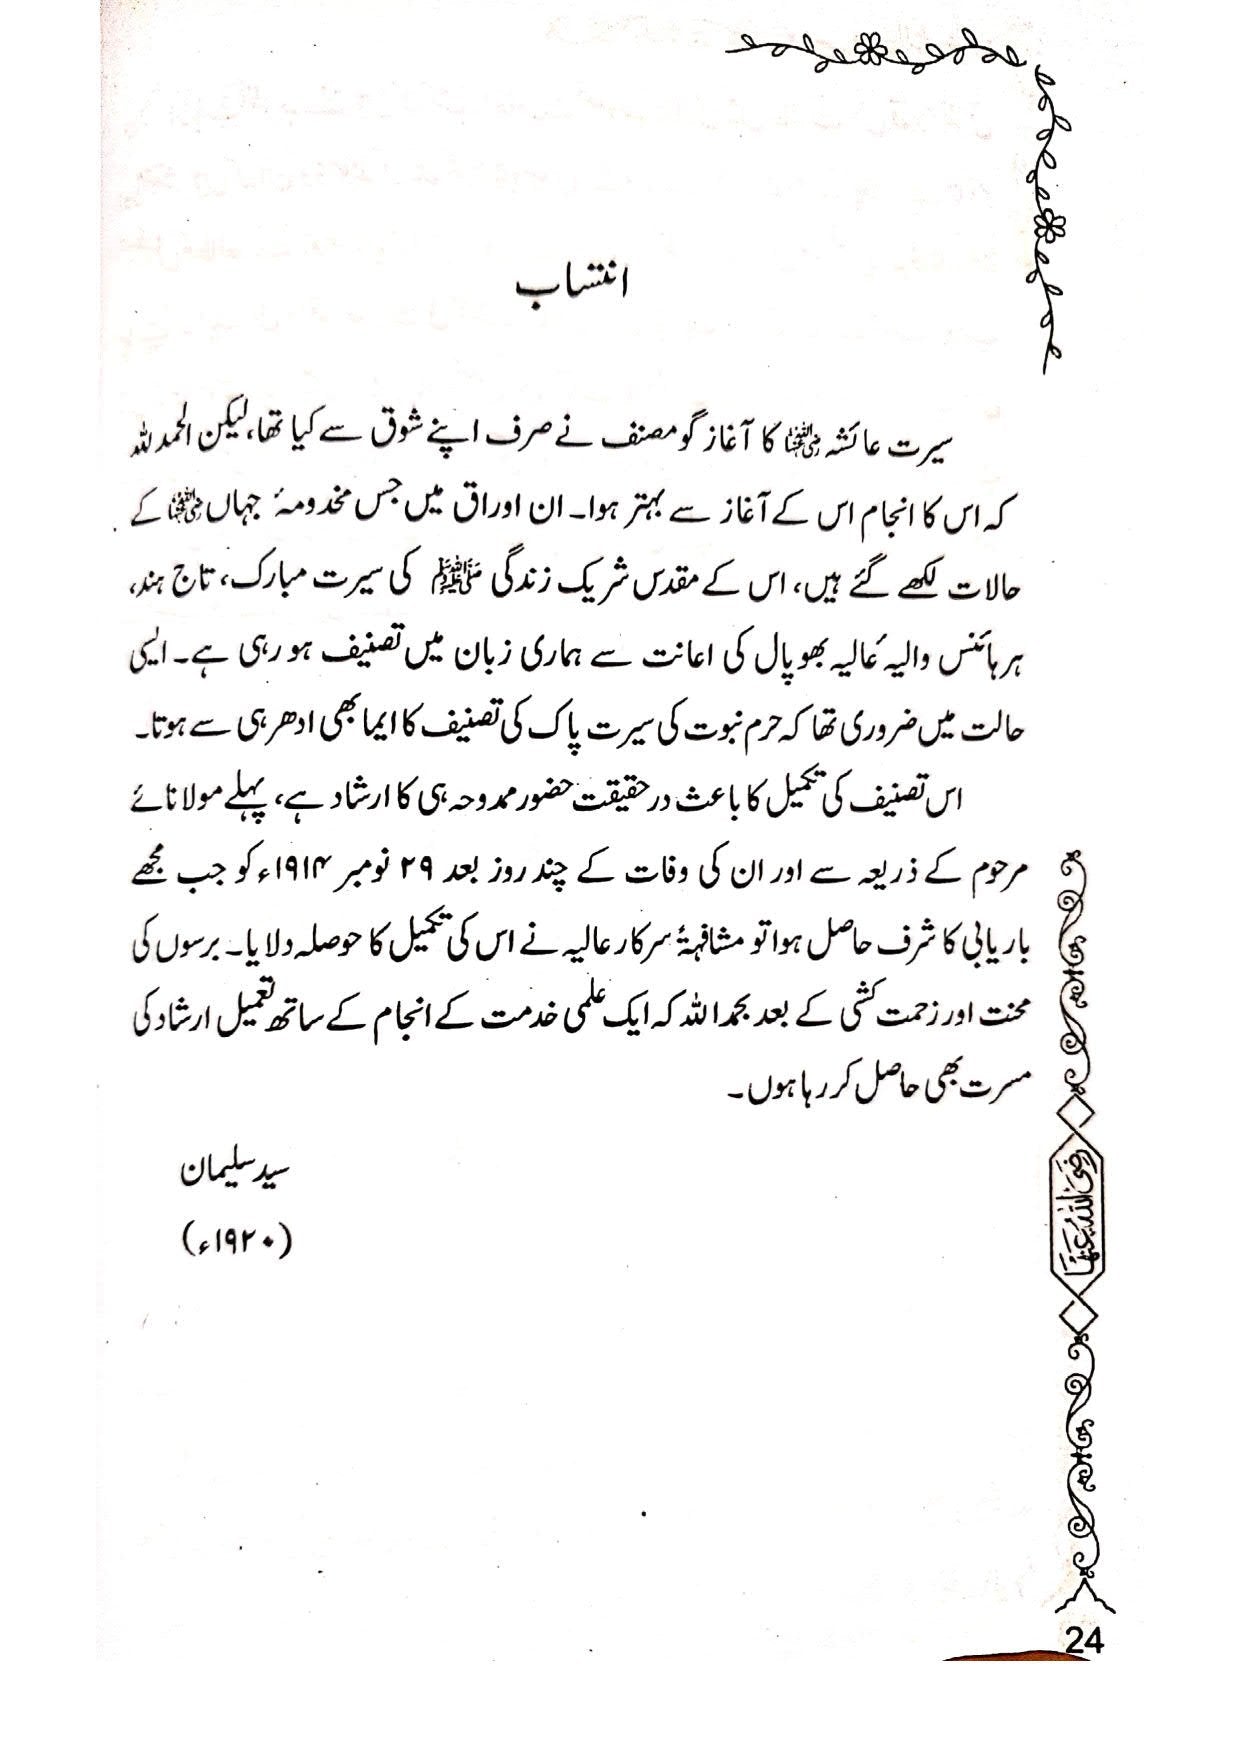 انتساب
سیرت عائشہ رضی اللہ عنہا کا آغاز گو مصنف نے صرف اپنے شوق سے کیا تھا، لیکن الحمدللہ
کہ اس کا انجام اس کے آغاز سے بہتر ہوا۔ ان اوراق میں جس مخدومۂ جہاں رضی اللہ عنہا کے
حالات لکھے گئے ہیں، اس کے مقدس شریک زندگی ﷺ کی سیرت مبارک، تاج ہند،
ہر ہائنس والیہ عالیہ بھوپال کی اعانت سے ہماری زبان میں تصنیف ہو رہی ہے۔ ایسی
حالت میں ضروری تھا کہ حرم نبوت کی سیرت پاک کی تصنیف کا ایما بھی ادھر ہی سے ہوتا۔
اس تصنیف کی تکمیل کا باعث در حقیقت حضور ممدوحہ ہی کا ارشاد ہے، پہلے مولانائے
مرحوم کے ذریعہ سے اور ان کی وفات کے چند روز بعد ۲۹ نومبر ۱۹۱۴ء کو جب مجھے
باریابی کا شرف حاصل ہوا تو مشافہۃً سرکار عالیہ نے اس کی تکمیل کا حوصلہ دلایا۔ برسوں کی
محنت اور زحمت کشی کے بعد بحمداللہ کہ ایک علمی خدمت کے انجام کے ساتھ تعمیل ارشاد کی
مسرت بھی حاصل کر رہا ہوں۔
سید سلیمان
(۱۹۲۰ء)
رَضِیَ اللّٰہُ عَنْہَا
24